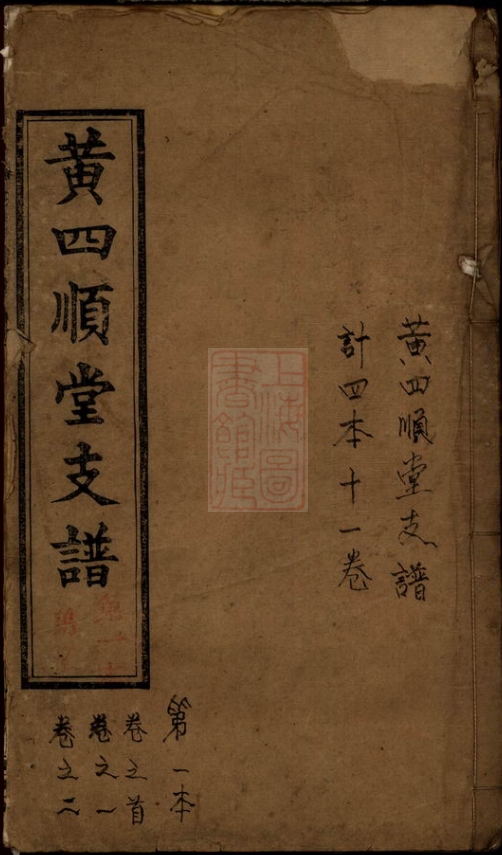 黄四順堂支譜
計四本十一卷
上海圖
書館藏
黄四順堂支譜
第一本
卷之首
卷之一
卷之二